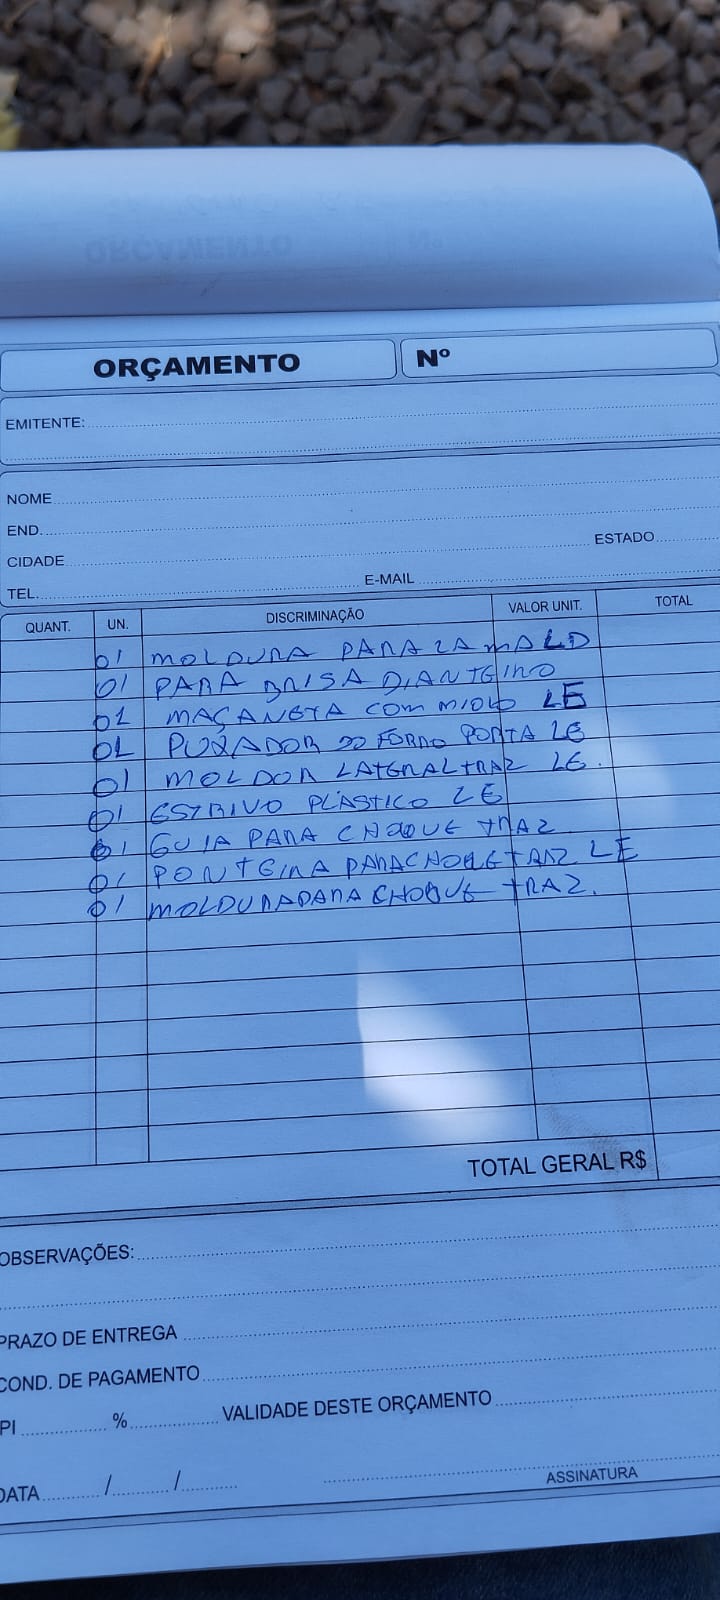 ORÇAMENTO Nº
EMITENTE:
NOME
END.
CIDADE ESTADO
TEL. E-MAIL
QUANT. UN. DISCRIMINAÇÃO VALOR UNIT. TOTAL
01 MOLDURA PARALAMA LD
01 PARA BRISA DIANTEIRO
01 MAÇANETA COM MIOLO LE
01 PUXADOR DO FORRO PORTA LE
01 MOLDOR LATERAL TRAZ LE.
01 ESTRIVO PLASTICO LE
01 GUIA PARA CHOQUE TRAZ
01 PONTEIRA PARACHOQUE TRAZ LE
01 MOLDURA PARA CHOQUE TRAZ.
TOTAL GERAL R$
OBSERVAÇÕES:
PRAZO DE ENTREGA
COND. DE PAGAMENTO
PI % VALIDADE DESTE ORÇAMENTO
DATA / /
ASSINATURA